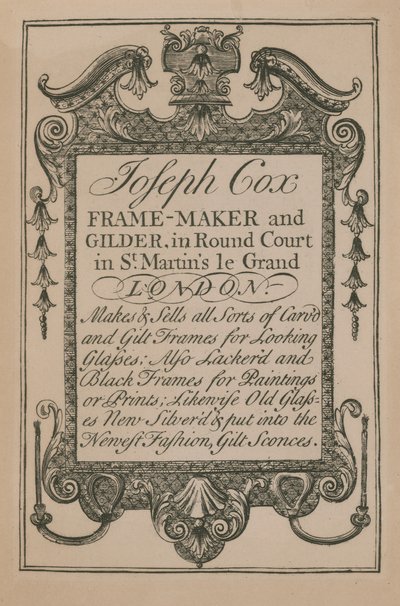 Joſeph Cox
FRAME-MAKER and
GILDER, in Round Court
in St. Martin's le Grand
LONDON
Makes & Sells all Sorts of Carv'd
and Gilt Frames for Looking
Glaſses; Alſo Lacker'd and
Black Frames for Paintings
or Prints; Likewiſe Old Glaſs=
es New Silver'd & put into the
Newest Faſhion, Gilt Sconces.